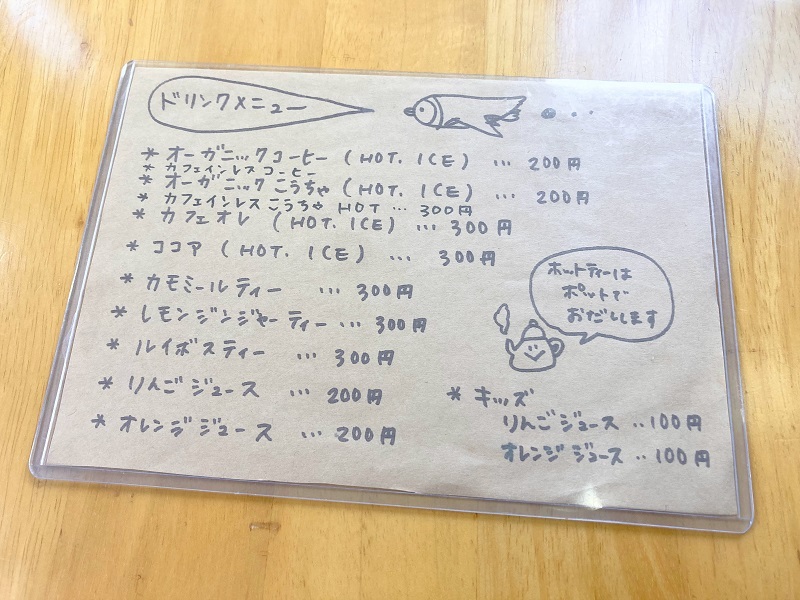 ドリンクメニュー
* オーガニックコーヒー (HOT. ICE) ... 200円
* カフェインレス コーヒー
* オーガニック こうちゃ (HOT. ICE) ... 200円
* カフェインレス こうちゃ HOT ... 300円
* カフェオレ (HOT. ICE) ... 300円
* ココア (HOT. ICE) ... 300円
* カモミールティー ... 300円
* レモンジンジャーティー ... 300円
* ルイボスティー ... 300円
* りんごジュース ... 200円
* オレンジジュース ... 200円
ホットティーは
ポットで
おだしします
* キッズ
りんごジュース ..100円
オレンジジュース ..100円